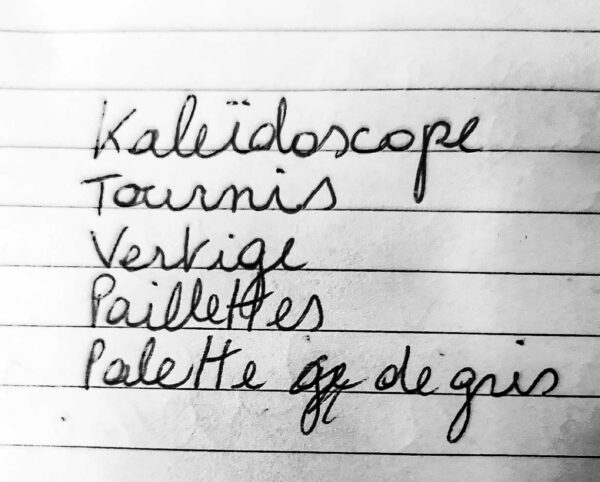 Kaleïdoscope
Tournis
Vertige
Paillettes
Palette de gris